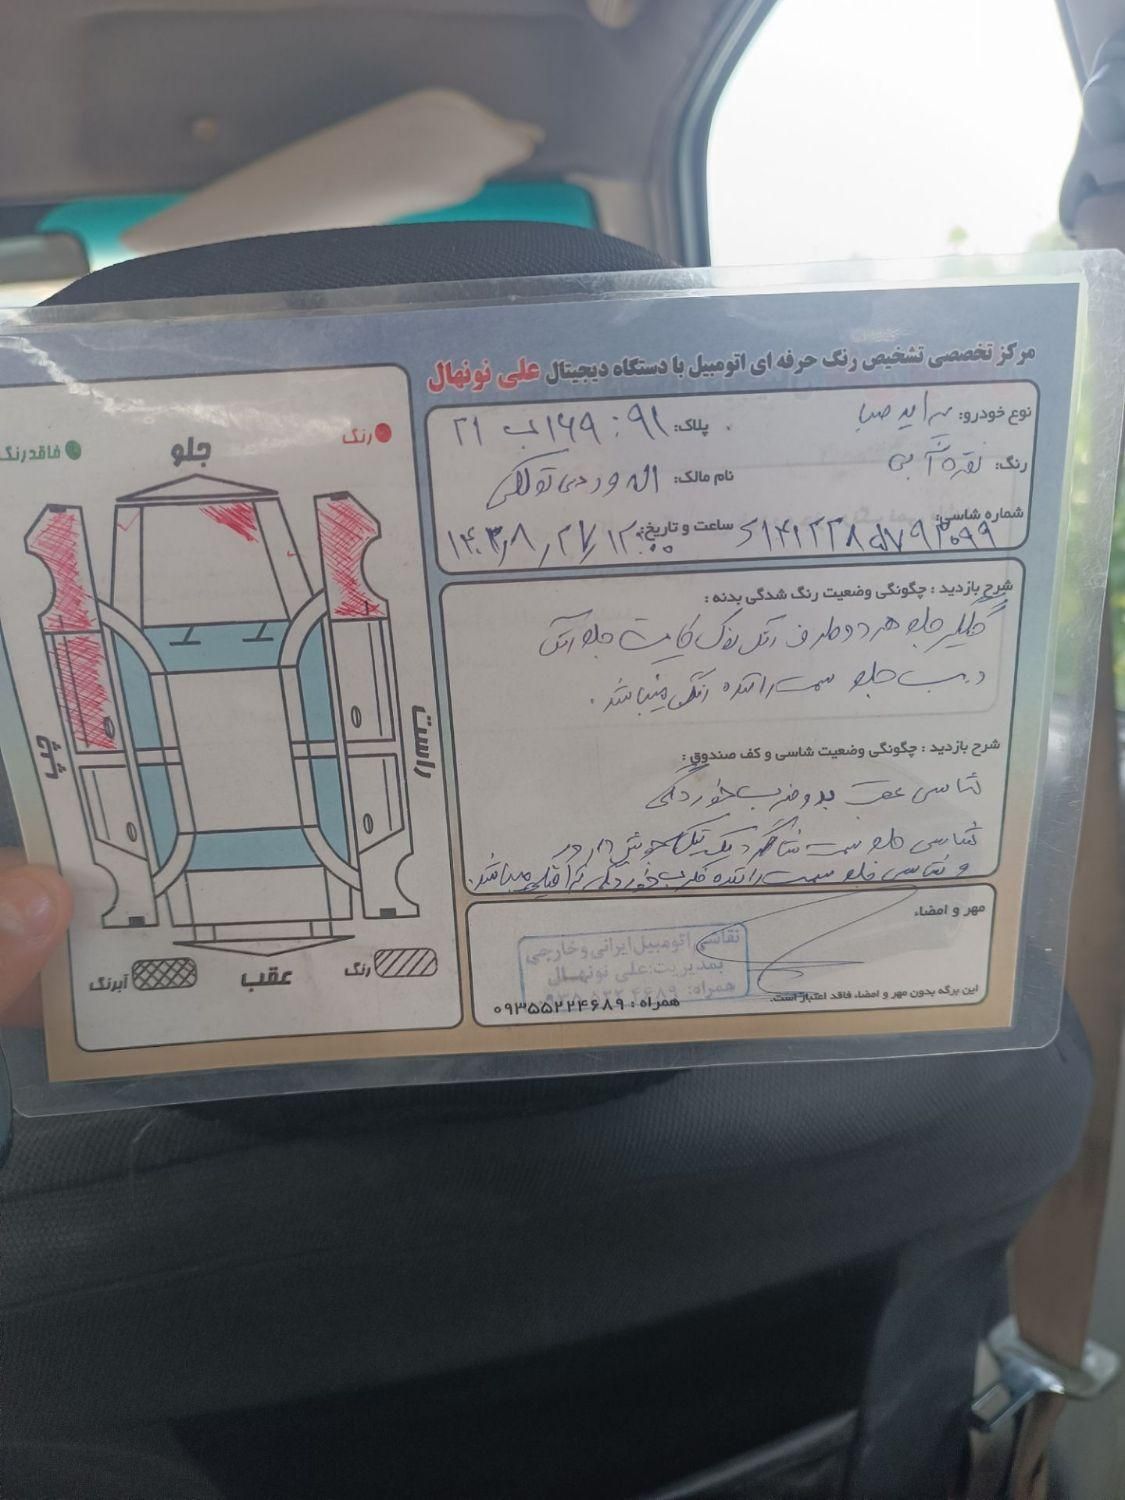 مرکز تخصصی تشخیص رنگ حرفه ای اتومبیل با دستگاه دیجیتال علی نونهال
نوع خودرو: پراید صبا
پلاک: ۹۱ : ۱۶۹ ب ۲۱
رنگ: نقره آبی
نام مالک:
شماره شاسی: S۱۴۱۲۲۸۵۷۹۳۰۹۹
ساعت و تاریخ: ۱۴۰۳/۸/۲۷/۱۲:۰۰
شرح بازدید : چگونگی وضعیت رنگ شدگی بدنه :
گلگیر جلو هر دو طرف رنگ نوک کاپوت جلو رنگ
درب جلو سمت راننده رنگ میباشد.
شرح بازدید : چگونگی وضعیت شاسی و کف صندوق :
شاسی عقب بدو ضرب خوردگی
شاسی جلو سمت شاگرد یک تیکه جوش دارد
و شاسی جلو سمت راننده ضرب خوردگی میباشد.
مهر و امضاء
نقاشی اتومبیل ایرانی و خارجی
بمدیریت: علی نونهال
همراه:
این برگه بدون مهر و امضاء فاقد اعتبار است.
همراه : ۰۹۳۵۵۲۲۴۶۸۹
رنگ
فاقد رنگ
جلو
چپ
راست
عقب
رنگ
آبرنگ